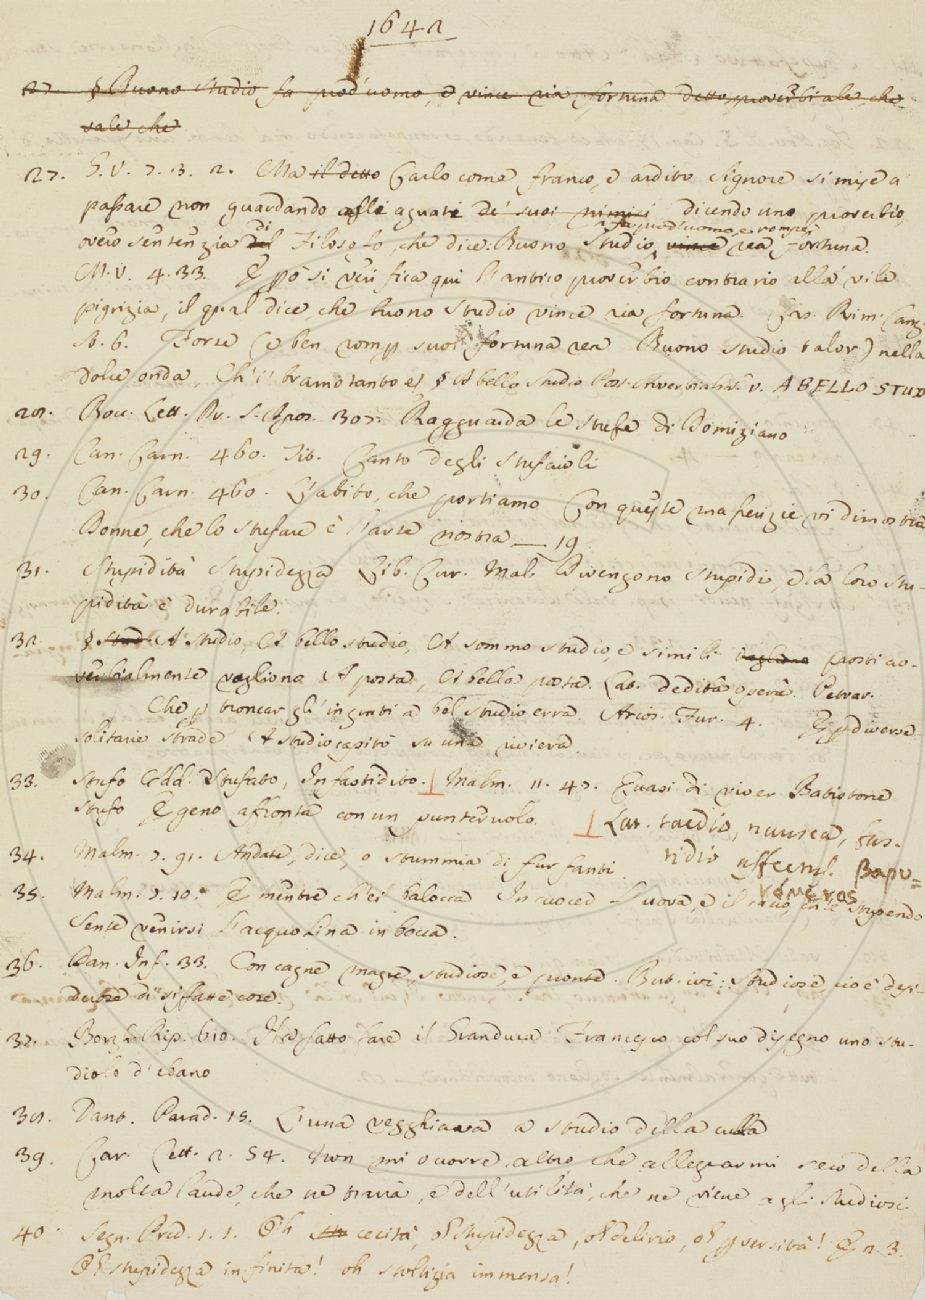 1642
27. § Buono studio fa prod'uomo, e vince ria fortuna detto proverbiale, che
vale, che
27. G. V. 7. 3. 2. Ma il detto Carlo come franco, e ardito Signore si mise a
passare non guardando agli aguati de' suoi nimici dicendo uno proverbio,
fa prod'uomo, e rompe
overo sentenzia di Filosofo, che dice: Buono studio, vince rea fortuna.
M. V. 4. 33. E pò si verifica qui l'antico proverbio contrario alla vile
pigrizia, il qual dice che buono studio vince ria fortuna. Rim.
st. 6. Forse (e ben romp suol fortuna rea Buono studio talor) nella
dolce onda, Ch'i' bramo tanto § A bello studio v. A BELLO STUD
28. Bocc. Lett. Pr. S. Apos. 307. Ragguarda le stufe di Domiziano
29. Can. Carn. 460. Tit. Canto degli Stufaioli
30. Can. Carn. 460. L'abito, che portiamo Con queste masserizie vi dimostra
Donne, che lo stufare è l'arte nostra — 19.
31. Stupidità Stupidezza Lib. Cur. Mal. Divengono stupidi, e la loro stu-
pidità è durabile.
32. § Stud A studio, A bello studio, A sommo studio, e simili vagliono posti av-
verbialmente vagliono A posta, A bella posta. Lat. dedita opera. Petrar.
Che p troncar gl'ingenti a bel studio erra. Arios. Fur. 4. E p diverse
solitarie strade A studio capitò su una riviera.
33. Stufo Add. Stufato, Infastidito. ⊥ Malm. 11. 47. Quasi di viver Batistone
stufo Egeno affronta con un punteruolo. ⊥ Lat. taedio, nausea, fas-
tidio affectus. βαρυ=
νόμενος
34. Malm. 7. 91. Andate, dice, o stummia di furfanti.
35. Malm. 7. 10. E mentre ch'ei balocca In cuocer l'uova, e il cacio, ch'è stupendo
Sente venirsi l'acquolina in bocca.
36. Dan. Inf. 33. Con cagne magre, studiose, e conte. But. ivi: Studiose, cioè desi-
derose di siffatte cose.
37. Borgh. Rip. 610. Ha fatto fare il Granduca Francesco col suo disegno uno stu-
diolo d'ebano
38. Dant. Parad. 15. L'una vegghiava a studio della culla
39. Car. Lett. 2. 54. Non mi occorre altro che allegrarmi seco della
molta laude, che ne trarrà, e dell'utilità, che ne viene agli studiosi
40. Segn. Pred. 1. 1. Oh cecità, oh stupidezza, oh delirio, oh pversità! E n. 3.
Oh stupidezza infinita! oh stoltizia immensa!